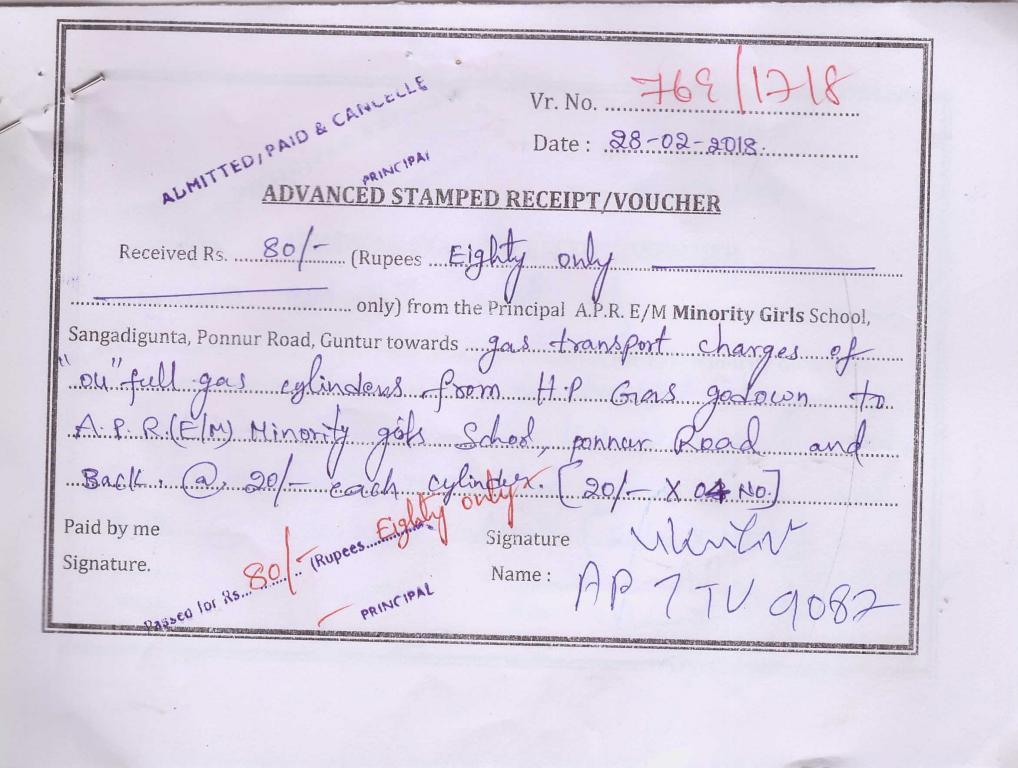 Vr. No. 769/1718
Date : 28-02-2018.
ALMITTED, PAID & CANCELLE
PRINCIPAL
ADVANCED STAMPED RECEIPT/VOUCHER
Received Rs. 80/- (Rupees Eighty only
only) from the Principal A.P.R. E/M Minority Girls School,
Sangadigunta, Ponnur Road, Guntur towards gas transport charges of
"04" full gas cylinders from H.P Gas godown to
A.P.R.(E/M) Minority girls School, ponnur Road and
Back. @. 20/- each cylinder. [20/- X 04 No.]
Paid by me
Signature.
Passed for Rs... 80/- (Rupees... Eighty only
PRINCIPAL
Signature
Name : AP 7 TV 9082